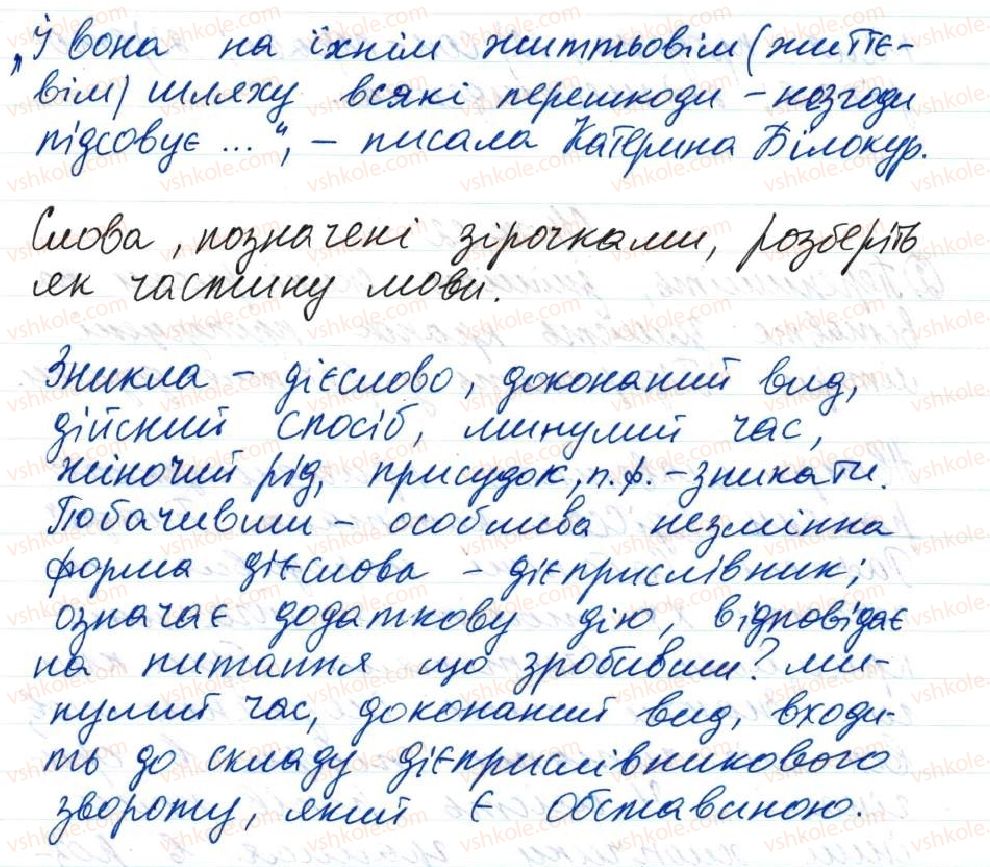 „І вона на їхнім життьовім (життє-
вім) шляху всякі перешкоди – незгоди
підсовує ...", – писала Катерина Білокур.
Слова, позначені зірочками, розберіть
як частину мови.
Зникла – дієслово, доконаний вид,
дійсний спосіб, минулий час,
жіночий рід, присудок, п.ф. – зникати.
Побачивши – особлива незмінна
форма дієслова – дієприслівник;
означає додаткову дію, відповідає
на питання що зробивши? ми-
нулий час, доконаний вид, входи-
ть до складу дієприслівникового
звороту, який є обставиною.